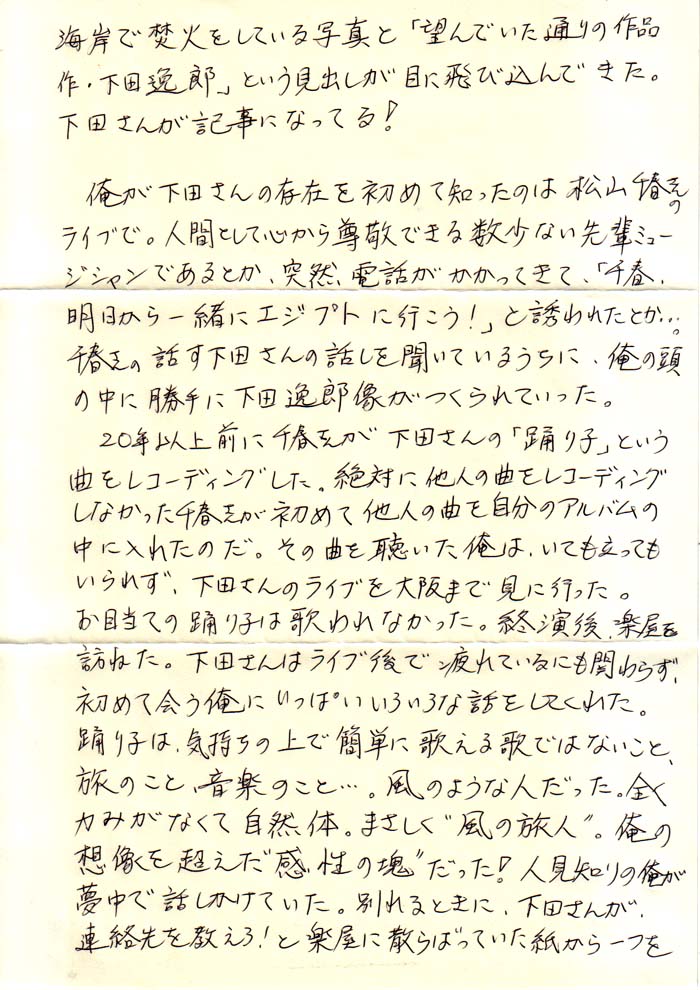 海岸で焚火をしている写真と「望んでいた通りの作品
作・下田逸郎」という見出しが目に飛び込んできた。
下田さんが記事になってる!
俺が下田さんの存在を初めて知ったのは松山千春さんの
ライブで。人間として心から尊敬できる数少ない先輩ミュー
ジシャンであるとか、突然、電話がかかってきて、「千春、
明日から一緒にエジプトに行こう!」と誘われたとか…。
千春さんの話す下田さんの話しを聞いているうちに、俺の頭
の中に勝手に下田逸郎像がつくられていった。
20年以上前に千春さんが下田さんの「踊り子」という
曲をレコーディングした。絶対に他人の曲をレコーディング
しなかった千春さんが初めて他人の曲を自分のアルバムの
中に入れたのだ。その曲を聴いた俺は、いても立っても
いられず、下田さんのライブを大阪まで見に行った。
お目当ての踊り子は歌われなかった。終演後、楽屋を
訪ねた。下田さんはライブ後で疲れているにも関わらず、
初めて会う俺にいっぱいいろいろな話をしてくれた。
踊り子は、気持ちの上で簡単に歌える歌ではないこと、
旅のこと、音楽のこと…。風のような人だった。全く
力みがなくて自然体。まさしく“風の旅人”。俺の
想像を超えた“感性の塊”だった!人見知りの俺が
夢中で話しかけていた。別れるときに、下田さんが、
連絡先を教えろ!と楽屋に散らばっていた紙から一つを